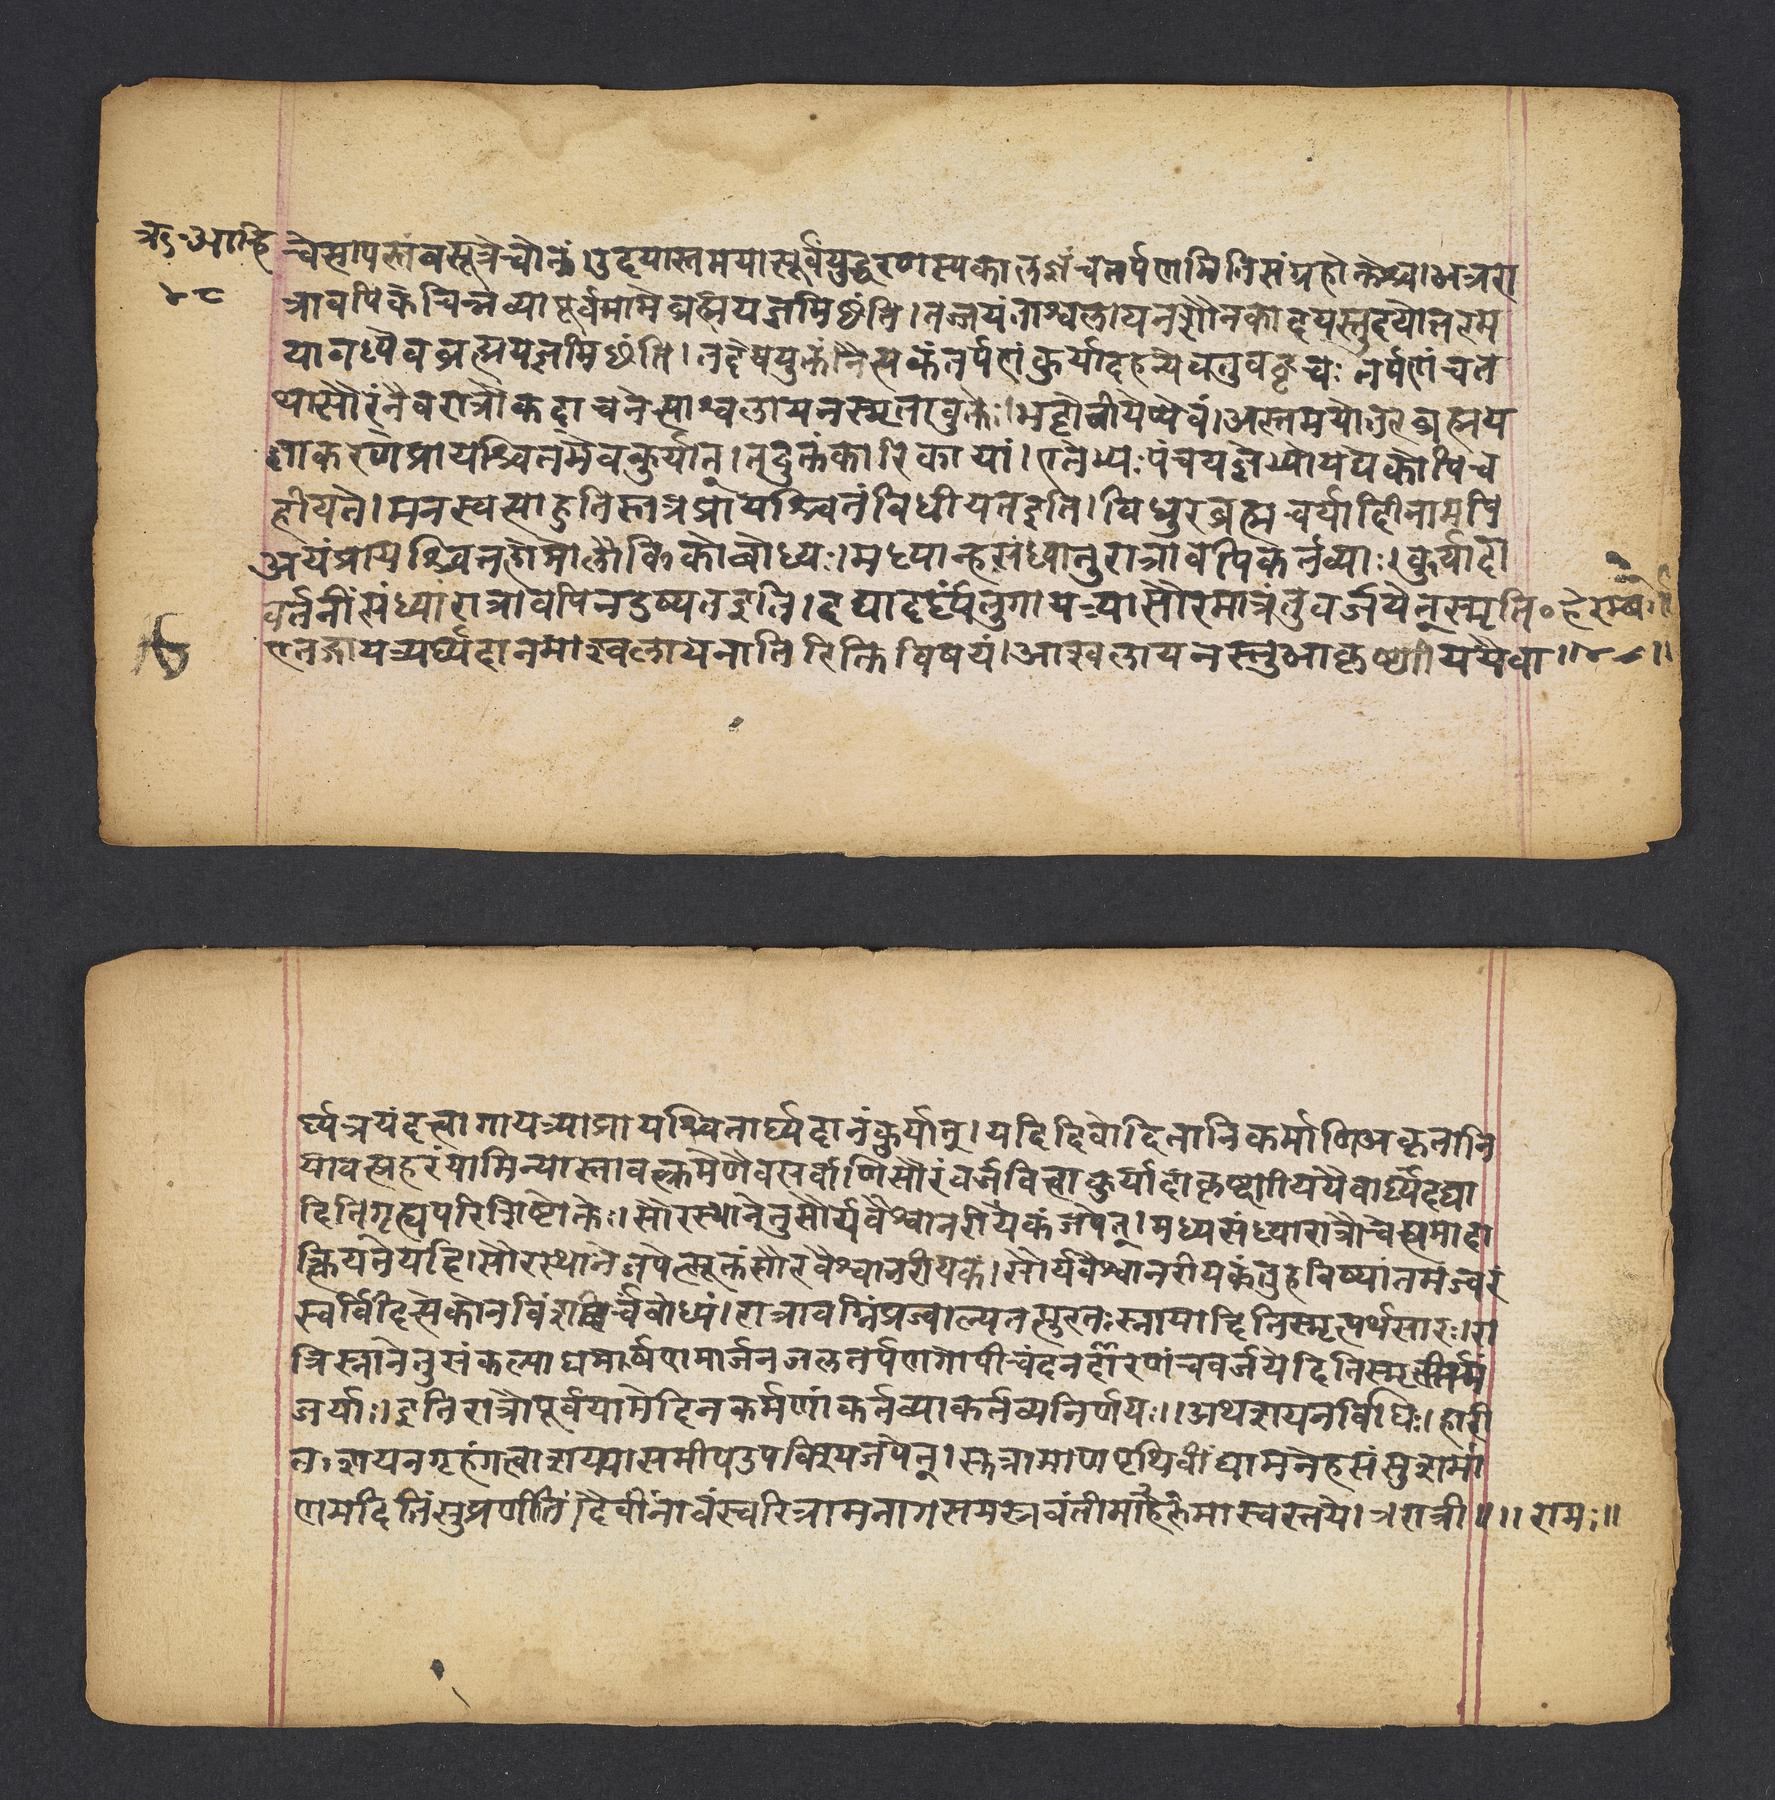 ऋ॰आन्हि
४८
च्चेसापस्तंबसूत्रेचोक्तं।उदयास्तमयात्पूर्वमुद्धरणस्यकालशंचतर्पणमितिसंग्रहोक्तेश्च।अत्ररा
त्रावपिकेचिन्नव्याःपूर्वमामेब्रह्मयज्ञमिछंति।तन्नयंताश्वलायनशौनकादयस्तुदयोत्तरम
यागध्यैवब्रह्मयज्ञमिछंति।तद्देषयुक्तंनैत्यकंतर्पणंकुर्यादहन्येवतुबह्वृचः तर्पणंचत
थासौरंनैवरात्रौकदाचनेत्याश्वलायनस्मृतावुक्तेः।भट्टोजीयेप्येवं।अस्तमयोत्तरंब्रह्मय
ज्ञाकरणेप्रायश्चित्तमेवकुर्यात्।तदुक्तंकारिकायां।एतेभ्यःपंचयज्ञेभ्योयद्येकोपिच
हीयते।मनस्वत्याहुतिस्तत्रप्रायश्चित्तंविधीयतइति।विधुरब्रह्मचर्यादीनामपि
अयंप्रायश्चित्तहोमोलौकिकोबोध्यः।मध्यान्हसंध्यातुरात्रावपिकर्तव्याः।कुर्यादा
वर्तनींसंध्यांरात्रावपिनदुष्यतइति।दद्यादर्घ्यंतुगायत्र्यासौरमात्रंतुवर्जयेत्स्मृति॰
एतद्गायत्र्यर्घ्यदानमाश्वलायनातिरिक्तविषयं।आश्वलायनस्तुआकृष्णीययैवा॥४८॥
र्घ्यत्रयंदत्वागायत्र्याप्रायश्चित्तार्घ्यदानंकुर्यात्।यदिदिवोदितानिकर्माणिअकृतानि
यावत्प्रहरंयामिन्यास्तावत्क्रमेणैवसर्वाणिसौरंवर्जवित्वाकुर्यादाकृष्णीययैवार्घ्यंदद्या
दितिगृह्यपरिशिष्टोक्तेः।सौरस्थानेतुसौर्यवैश्वानरीयैकंजपेत्।मध्यसंध्यारात्रौचेत्प्रमादा
त्क्रियतेयदि।सौरस्थानेजपेत्सूक्तंसौरवैश्वानरीयकं।सौर्यवैश्वानरीयकंतुहविष्यांतमजरं
स्वर्विदित्येकोनविंशर्चंबोध्यं।रात्रावग्निंप्रज्वाल्यतत्पुरतःस्नायादितिस्मृत्यर्थसारः।रा
त्रिस्नानेतुसंकल्पाघमर्षणमार्जनजलतर्पणगोपीचंदनधारणंचवर्जयेदिति
र्जर्याः॥इतिरात्रौपूर्वयामेदिनकर्मणांकर्तव्याकर्तव्यनिर्णयः॥अथशयनविधिः।हारी
तःशयनगृहंगत्वाशय्यासमीपउपविश्यजपेत्।सुत्रामाणंपृथिवींद्यामनेहसंसुशर्मा
णमदितिंसुप्रणीतिं।दैवींनावंस्वरित्रामनागसमस्रवंतीमारुहेमास्वस्तये।त्ररात्री॥॥रामः॥